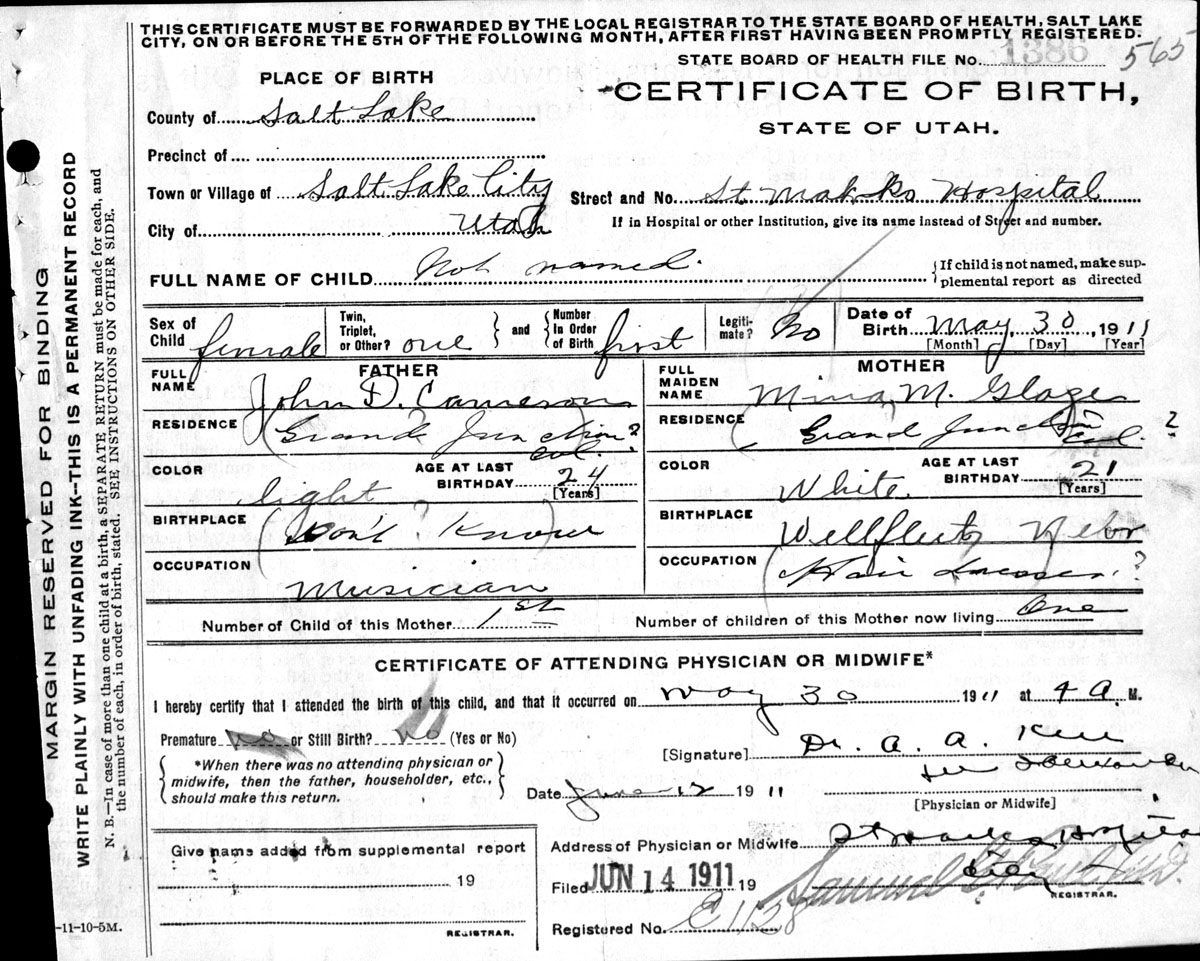 THIS CERTIFICATE MUST BE FORWARDED BY THE LOCAL REGISTRAR TO THE STATE BOARD OF HEALTH, SALT LAKE
CITY, ON OR BEFORE THE 5TH OF THE FOLLOWING MONTH, AFTER FIRST HAVING BEEN PROMPTLY REGISTERED.
STATE BOARD OF HEALTH FILE No. 1386 565
PLACE OF BIRTH
CERTIFICATE OF BIRTH,
STATE OF UTAH.
County of Salt Lake
Precinct of
Town or Village of Salt Lake City
Street and No. St Marks Hospital
City of Utah
If in Hospital or other Institution, give its name instead of Street and number.
FULL NAME OF CHILD Not named.
{If child is not named, make sup-
plemental report as directed
Sex of Child female
Twin, Triplet, or Other? one } and { Number In Order of Birth first
Legiti- mate? No
Date of Birth May 30, 1911
[Month] [Day] [Year]
FATHER
FULL NAME John D. Cameron
RESIDENCE (Grand Junction Col.?
COLOR light
AGE AT LAST BIRTHDAY 24
[Years]
BIRTHPLACE (Don't? Know)
OCCUPATION Musician
MOTHER
FULL MAIDEN NAME Mina M. Glaze
RESIDENCE ( Grand Junction Col. ?
COLOR White.
AGE AT LAST BIRTHDAY 21
[Years]
BIRTHPLACE Wellfleet, Nebr
OCCUPATION Hair dresser.?
Number of Child of this Mother 1st
Number of children of this Mother now living One
CERTIFICATE OF ATTENDING PHYSICIAN OR MIDWIFE*
I hereby certify that I attended the birth of this child, and that it occurred on May 30 1911 at 4 A. M.
Premature no or Still Birth? no (Yes or No)
{ *When there was no attending physician or
midwife, then the father, householder, etc.,
should make this return. }
[Signature] Dr. A. A. Kerr
Date June 12 1911
[Physician or Midwife]
Give name added from supplemental report
19
REGISTRAR.
Address of Physician or Midwife St Marks Hospital
City
Filed JUN 14 1911 19
Samuel G. Paul M.D.
REGISTRAR.
Registered No. C 1128
-11-10-5M.
MARGIN RESERVED FOR BINDING
WRITE PLAINLY WITH UNFADING INK--THIS IS A PERMANENT RECORD
N. B.--In case of more than one child at a birth, a SEPARATE RETURN must be made for each, and
the number of each, in order of birth, stated. SEE INSTRUCTIONS ON OTHER SIDE.